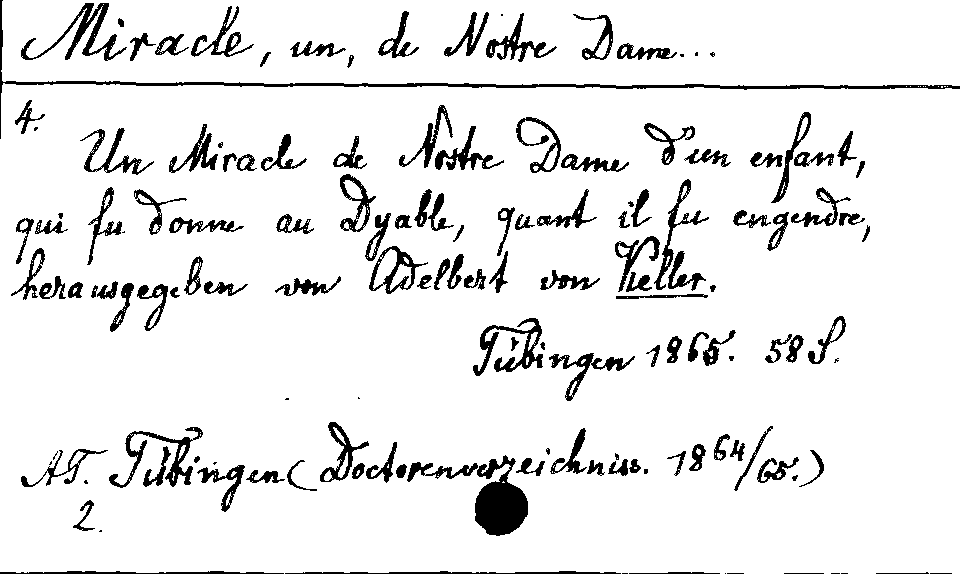 Miracle, un, de Nostre Dame...
4.
Un Miracle de Nostre Dame d'un enfant,
qui fu donne au Dyable, quant il fu engendre,
herausgegeben von Adelbert von Keller.
Tübingen 1865. 58 S.
AT. Tübingen (Doctorenverzeichniss. 1864/65.)
2.